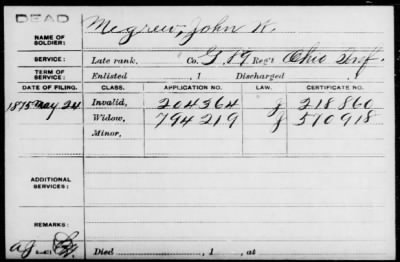 DEAD
NAME OF SOLDIER: Megrew, John W.
SERVICE: Late rank, Co. G 89 Reg't Ohio Inf.
TERM OF SERVICE: Enlisted , 1 Discharged , 1
DATE OF FILING. CLASS. APPLICATION NO. LAW. CERTIFICATE NO.
1875 May 24 Invalid, 204364 J 218860
Widow, 794219 J 570918
Minor,
ADDITIONAL SERVICES:
REMARKS:
Died , 1 , at